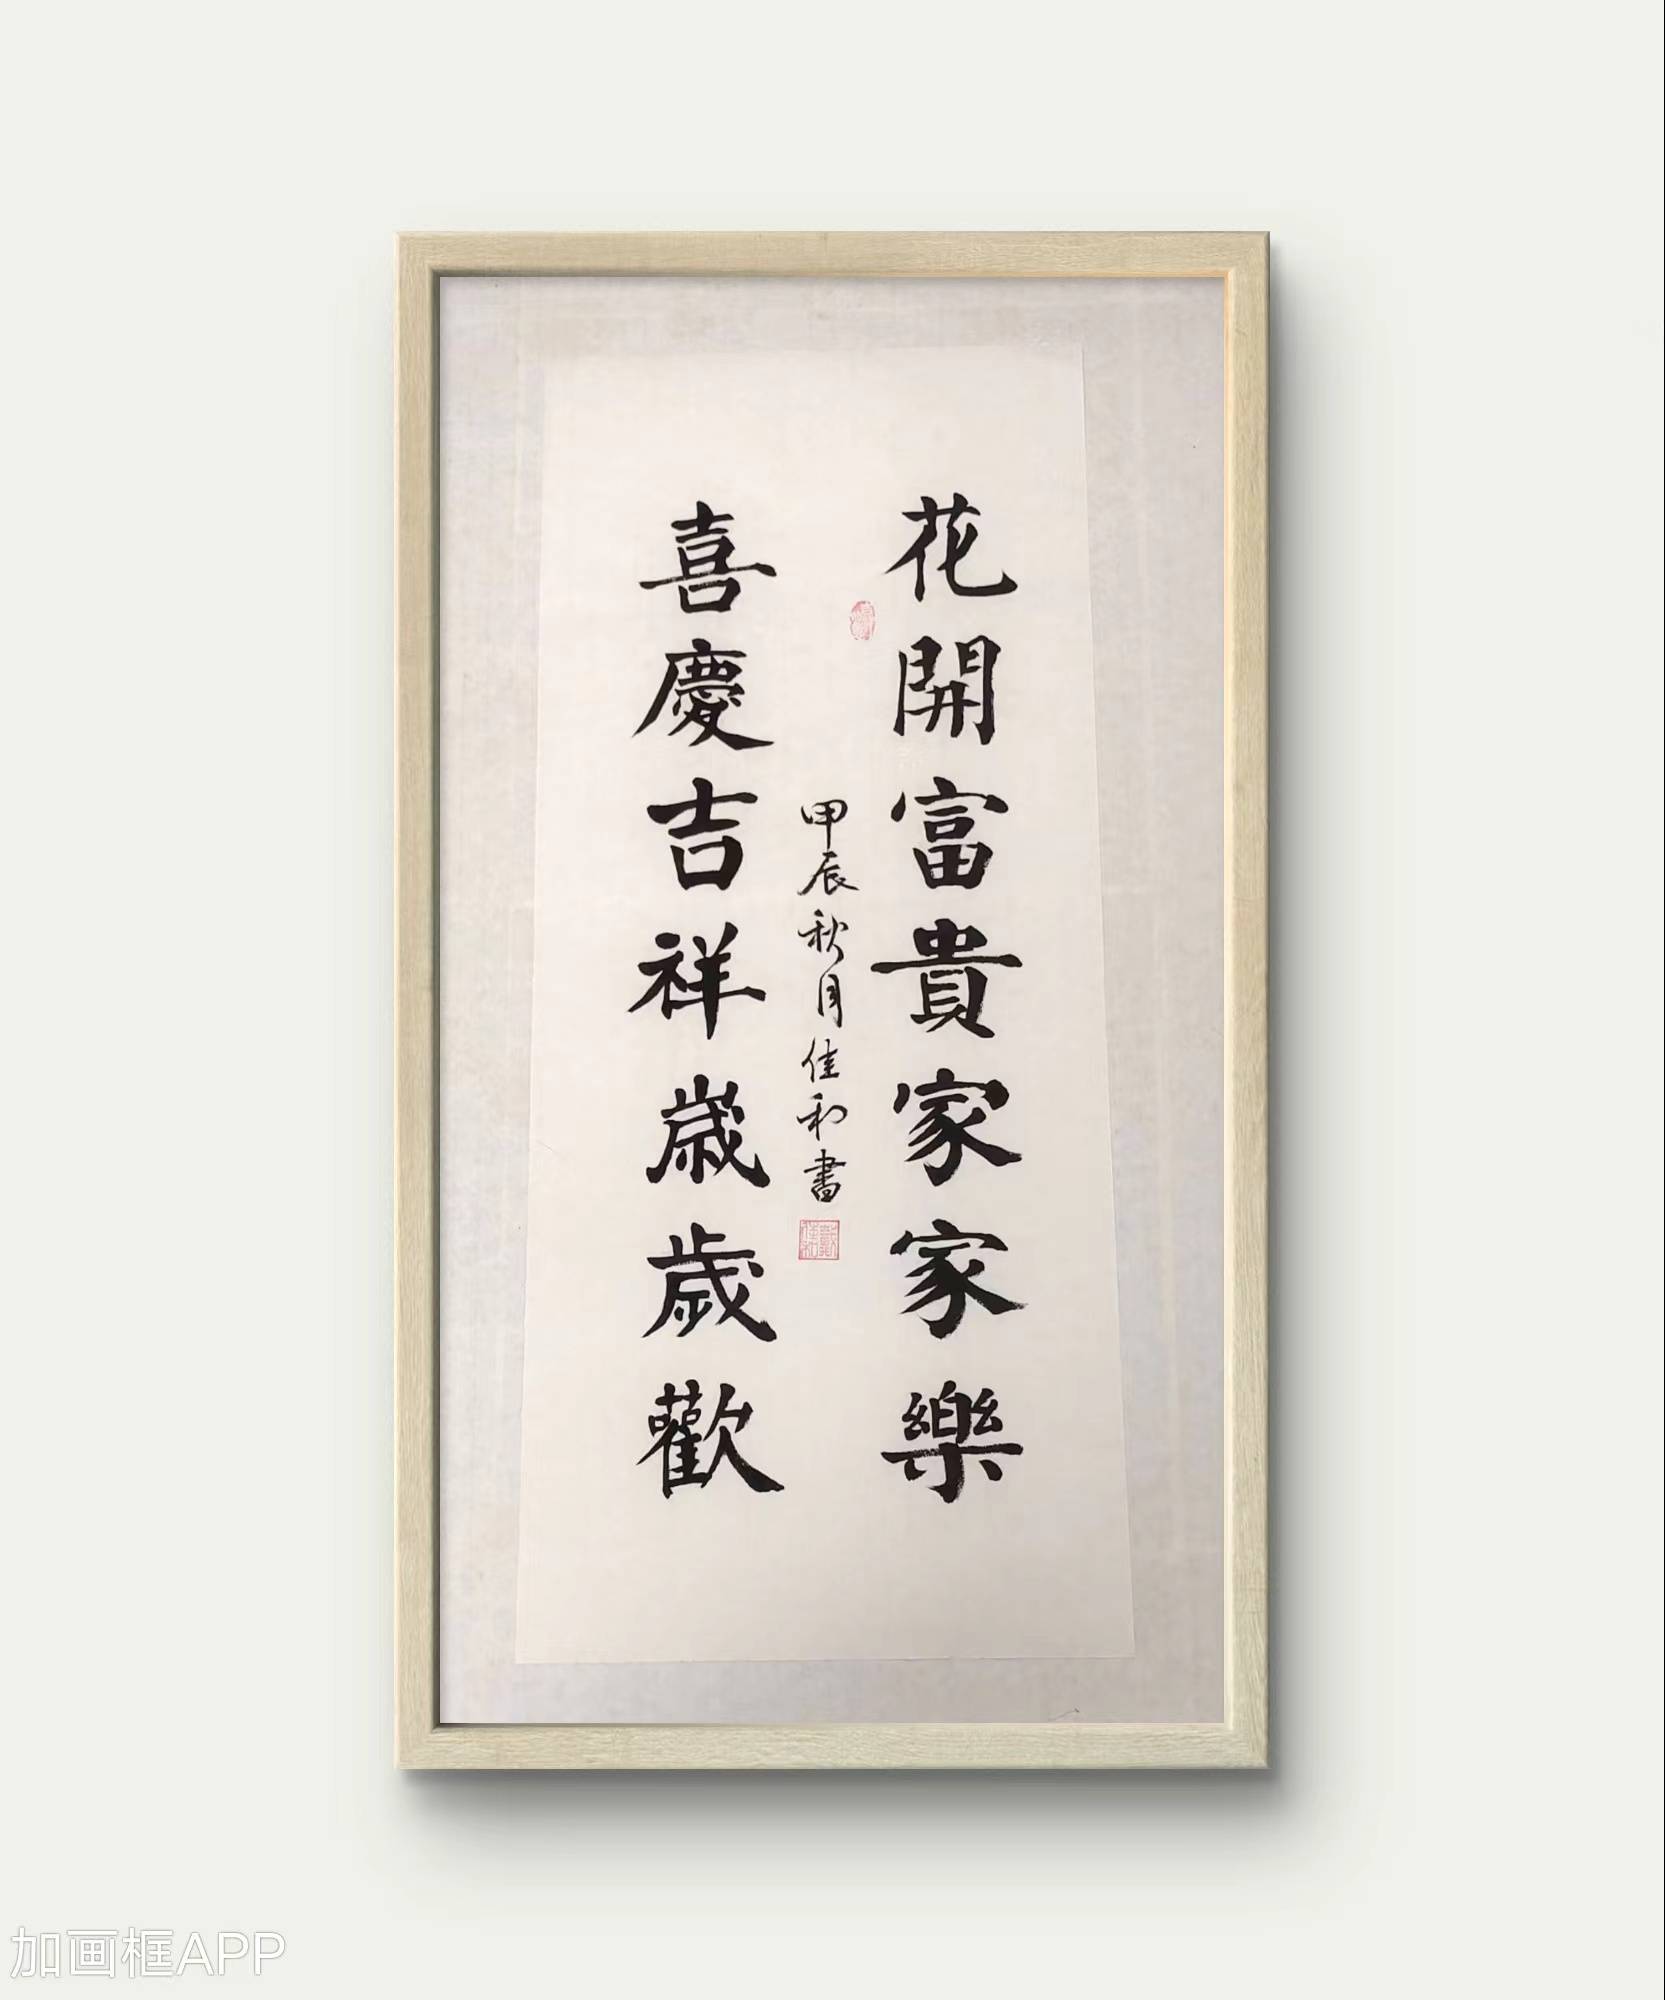 花開富貴家家樂
喜慶吉祥歲歲歡
甲辰秋月佳和書
加画框APP